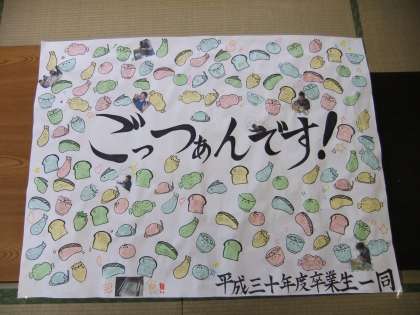 ごっつぁんです!
平成三十年度卒業生一同